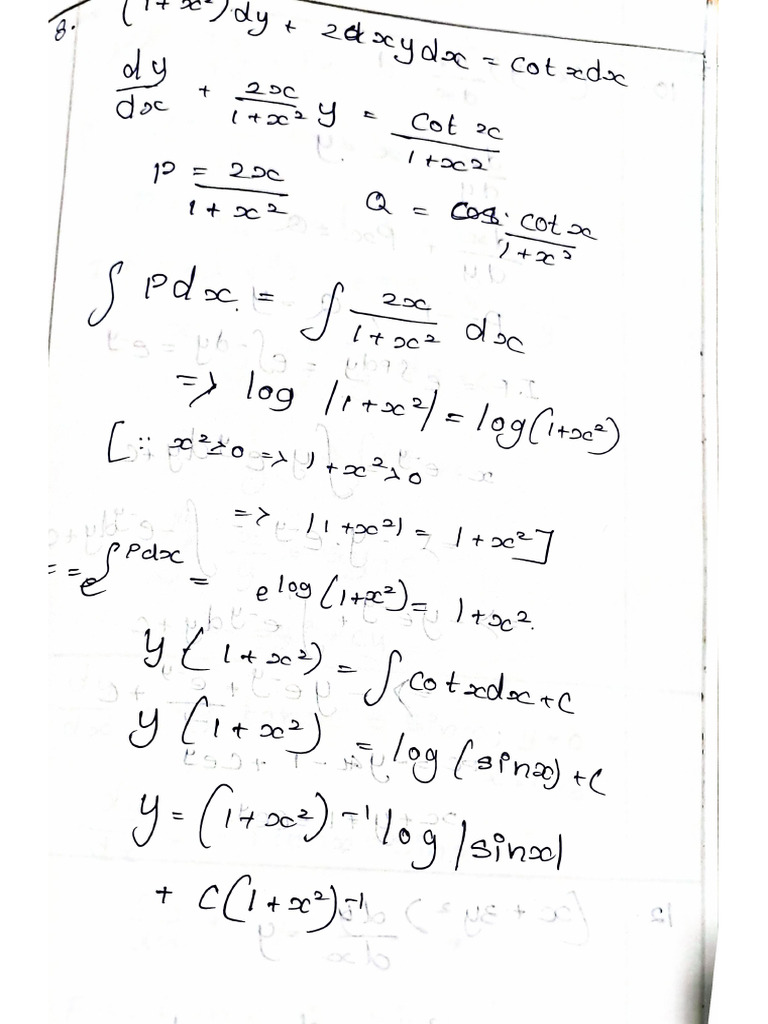 8. (1+x²)dy + 2xydx = cotxdx
dy/dx + 2x/1+x² y = cot x/1+x²
P = 2x/1+x² Q = cot x/1+x²
∫Pdx. = ∫ 2x/1+x² dx
=> log |1+x²| = log(1+x²)
[∵ x²≥0 => 1+x²>0
=> |1+x²| = 1+x²]
== e^∫Pdx = e^log(1+x²) = 1+x².
y(1+x²) = ∫cotxdx+C
y(1+x²) = log(sinx)+C
y = (1+x²)⁻¹ log|sinx|
+ C(1+x²)⁻¹